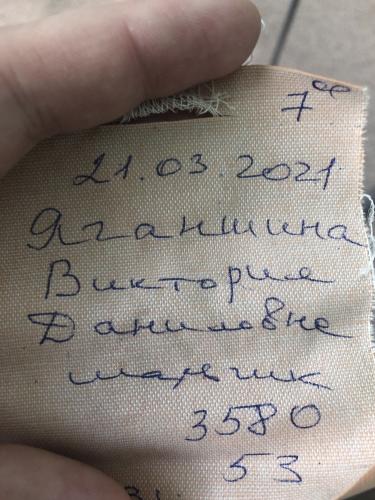 7⁰⁰
21.03.2021
Яганшина
Виктория
Даниловне
мальчик
3580
53